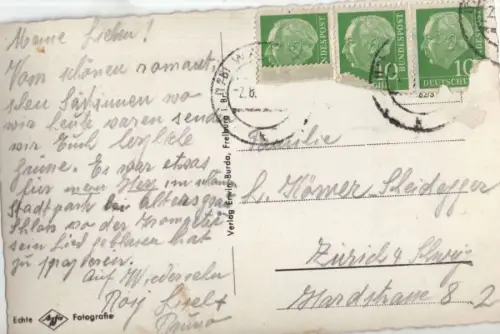 Meine Lieben!
Vom schönen romant-
schen Säckingen wo
wir heute waren senden
wir Euch herzliche
Grüsse. Es war etwas
für mein Herz im schönen
Stadtpark bei
Schloss wo der Trompeter
sein Lied geblasen hat
zu spazieren.
Auf Wiedersehn
Rosy Lisel +
Bruno
Echte Agfa Fotografie
Verlag Erwin Burda, Freiburg i. Br.
DEUTSCHE BUNDESPOST
10 BUNDESPOST
10 DEUTSCHE BUNDESPOST
-2.8.
Familie
H. Körner-Scheidegger
Zürich 2 Schweiz
Hardstrasse 82